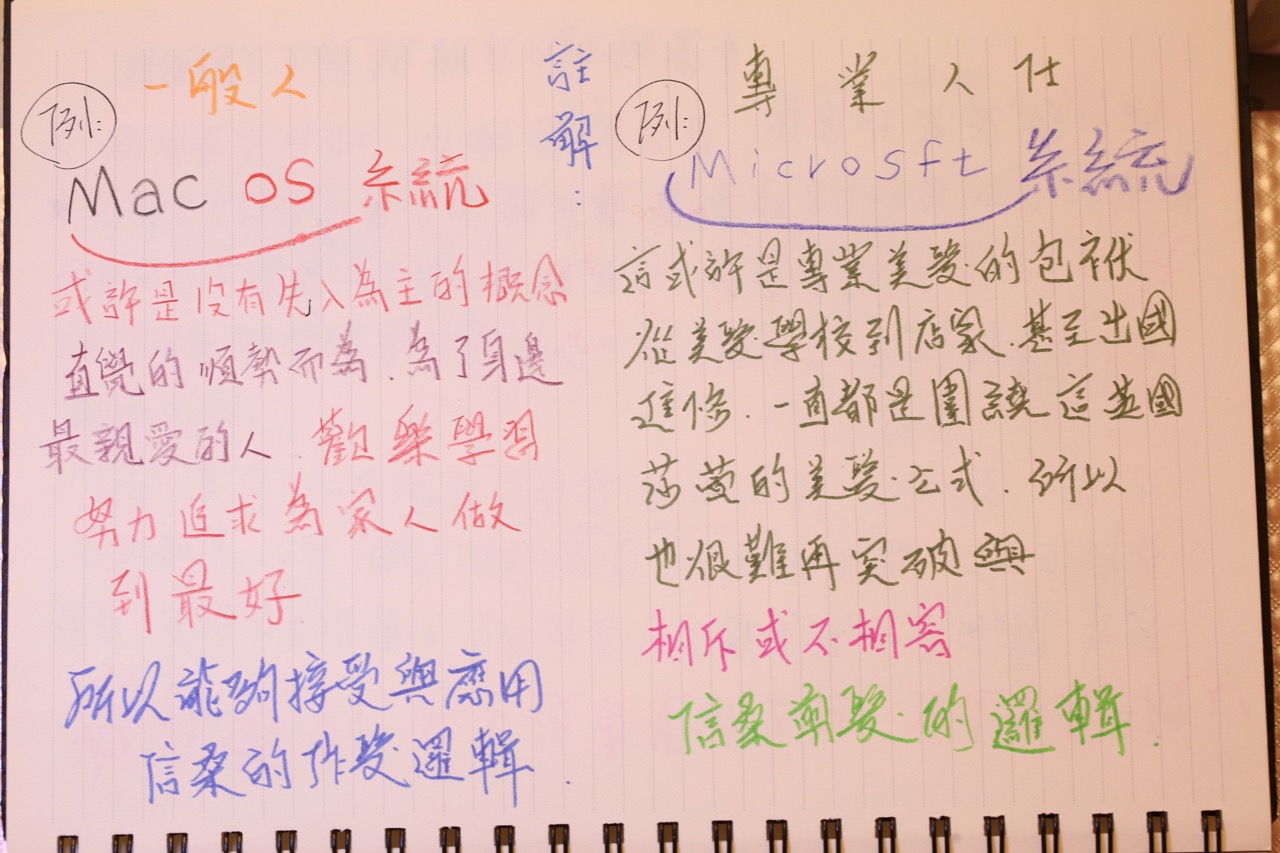 一般人
例:
Mac OS 系統
或許是沒有先入為主的概念
直覺的順勢而為.為了身邊
最親愛的人.歡樂學習
努力追求為家人做
到最好
所以能夠接受與應用
信桑的作髮邏輯.
註解:
專業人仕
例:
Microsft 系統
這或許是專業美髮的包袱
從美髮學校到店家.甚至出國
進修.一直都是圍繞這英國
莎萱的美髮公式.所以
也很難再突破與
相斥或不相容
信桑剪髮的邏輯.